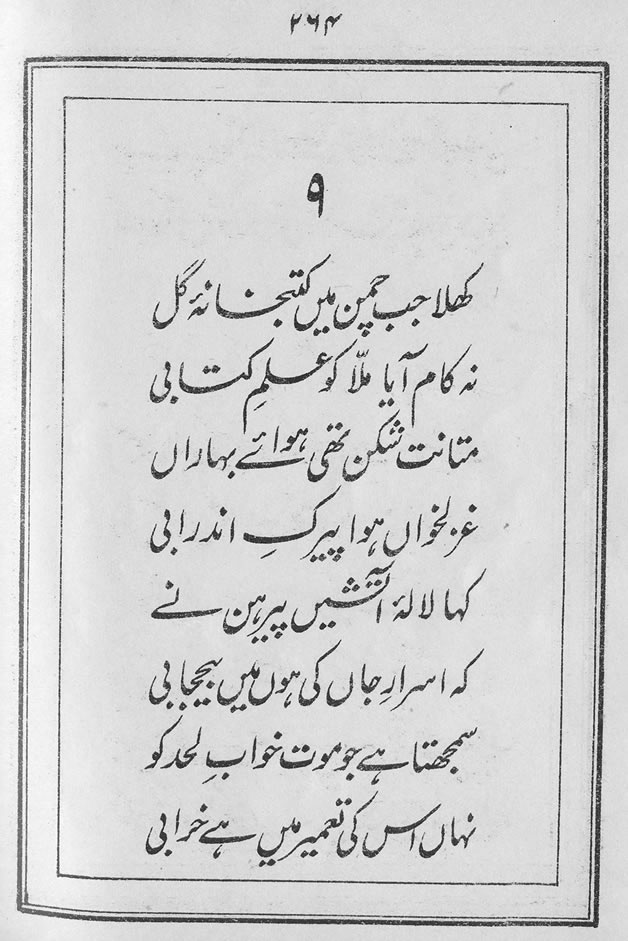 ۲۶۴
۹
کھلا جب چمن میں کتبخانۂ گل
نہ کام آیا ملّا کو علمِ کتابی
متانت شکن تھی ہوائے بہاراں
غزلخواں ہوا پیرکِ اندرابی
کہا لالۂ آتشیں پیرہن نے
کہ اسرارِ جاں کی ہوں میں بیحجابی
سمجھتا ہے جو موت خوابِ لحد کو
نہاں اس کی تعمیر میں ہے خرابی